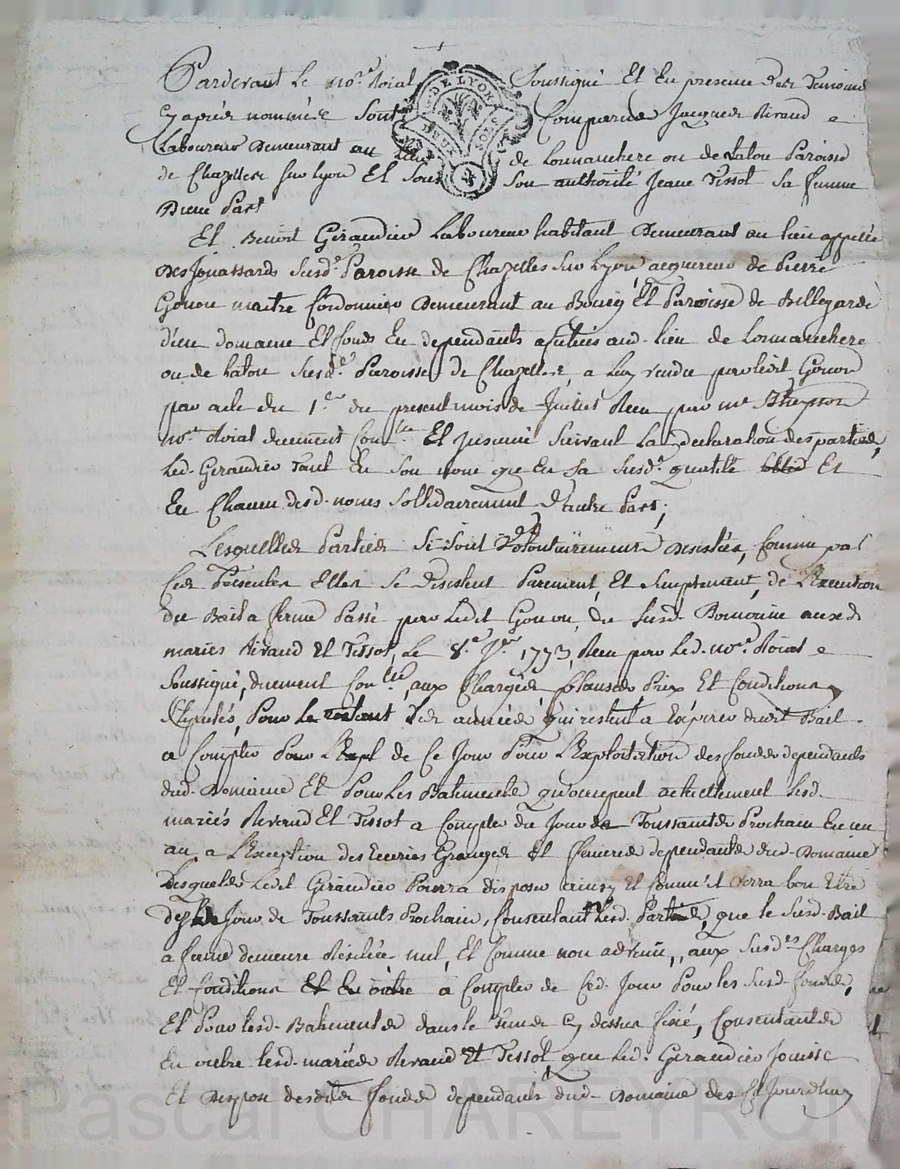 Pardevant Le no.re Roial Soussigné Et En presence des Temoins
Cy aprés nommés Sont Comparus Jacques Rivaud
GN. DE LYON
DEUX SOLS
Laboureur Demeurant au Lieu de Lormanchere ou de Latou Paroisse
de Chazelles sur Lyon Et Sous Son authorité Jeane Tissot Sa femme
D'une Part
Et Benoit Giraudier Laboureur habitant Demeurant au lieu appellé
Des Jouassards Susd.e Paroisse de Chazelles Sur Lyon, acquereur de Pierre
Gouon maitre Cordonnier Demeurant au Bourg Et Paroisse de Bellegarde
d'un domaine Et fonds En dependants aud. lieu de Lormanchere
ou de Latou Susd.e Paroisse de Chazelles a Luy vendu par ledit Gouon
par acte du 1.er du present mois de Juillet Reçu par me
no.re Roial duement Con.lé Et Jusinué Suivant La declaration des parties,
Led. Giraudier Tant En Son nom que En Sa Susd.e qualité Et
En Chacun desd. noms Sollidairement D'autre Part;
Lesquelles Parties Se Sont Volontairement desistées, Comme par
Ces Presentes Elles Se desistent Purement, Et Simplement, de L'Execution
du Bail a ferme Passé par Ledit Gouon, du Susd. Domaine auxd.
mariés Rivaud Et Tissot, Le 8.e 1773, Reçu par Led. no.re Roial
Soussigné, duement Con.lé, aux Charges Clauses Prix Et Conditions
Stipulés, Pour Le restant des années qui restent a Expirer dudit Bail
a Compter Pour L'Expl de Ce Jour Pour L'Exploitation des fonds dependants
dud. Domaine Et Pour Les Batiments qu'ocupent actuellement Lesd.
mariés Rivaud Et Tissot a Compter du Jour de Toussaints Prochain En un
an, a L'Exception des Ecuries Granges Et fenieres dependants dud. Domaine
Desquelles Ledit Giraudier Pourra disposer ainsy Et Comm'il verra bon Etre
Jour de Toussaints Prochain, Consentant Lesd. Parties, que le Susd. Bail
a ferme demeure Resilié nul, Et Comme non advenu, aux Susd.es Charges
Et Conditions Et En outre a Compter de Ced. Jour Pour les Susd. fonds,
Et Pour lesd. Batiments dans le terme Cy dessus fixé, Consentants
En outre lesd. mariés Rivaud et Tissot que Led. Giraudier Jouisse
Et Dispose desdits fonds dependants dud. Domaine des Ce Jourdhuy
Pascal CHAREYRON